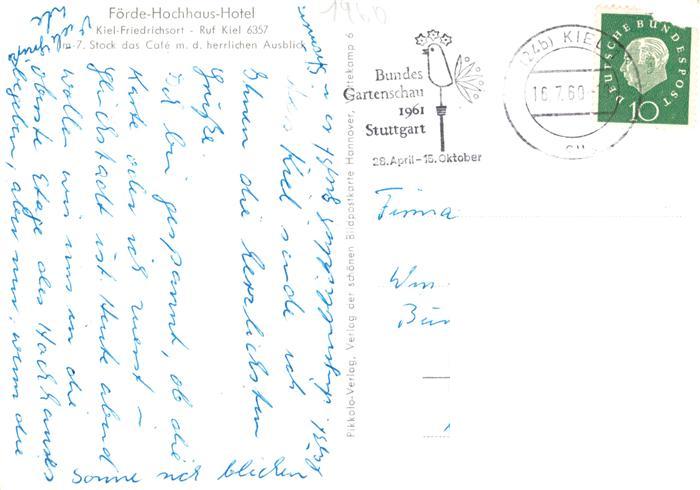 Förde-Hochhaus-Hotel
Kiel-Friedrichsort - Ruf Kiel 6357
Im 7. Stock das Café m. d. herrlichen Ausblick
Aus Kiel sende ich
Ihnen die herzlichsten
Grüße.
Ich bin gespannt, ob die
Karte oder ich zuerst in
Glückstadt ist. Heute abend
wollen wir uns in die
oberste Etage des Hochhauses
begeben, aber nur, wenn die
Sonne sich blicken
läßt.
Pikkolo-Verlag, Verlag der schönen Bildpostkarte Hannover,
Bundes
Gartenschau
1961
Stuttgart
28. April-15. Oktober
(24b) KIEL
16.7.60
DEUTSCHE BUNDESPOST
10
Firma
Wm.